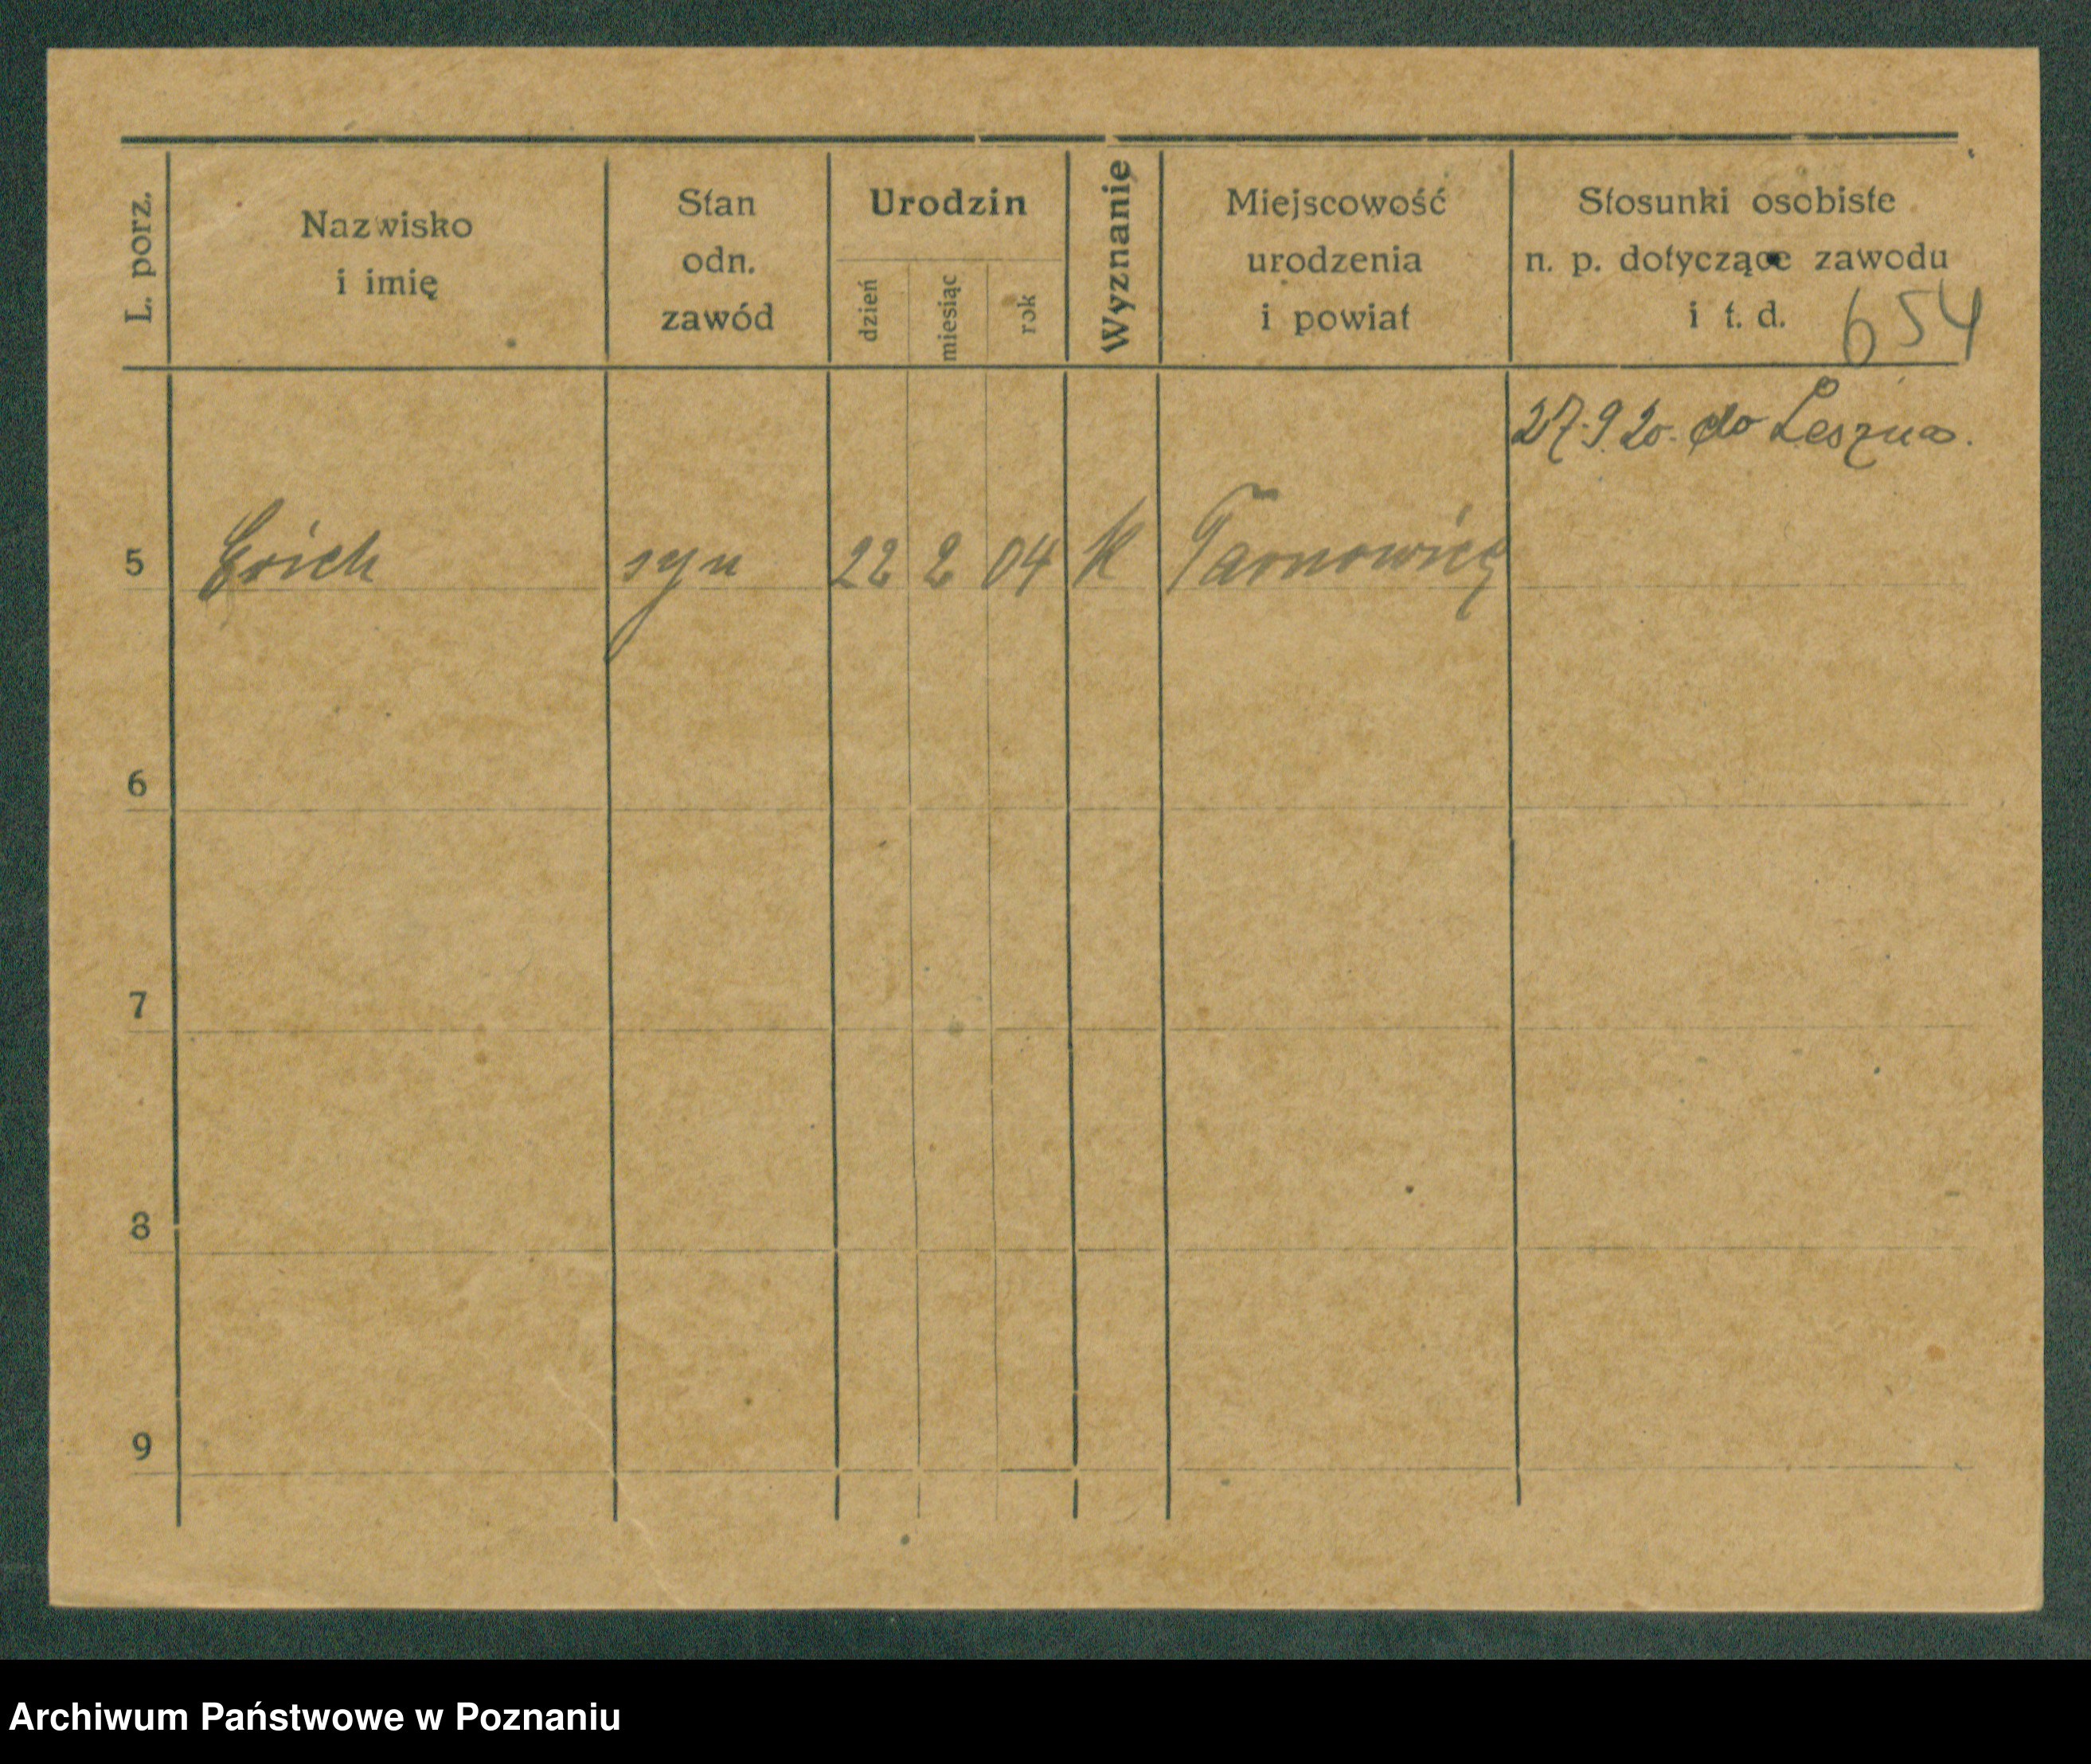 L. porz.
Nazwisko
i imię
Stan
odn.
zawód
Urodzin
dzień
miesiąc
rok
Wyznanie
Miejscowość
urodzenia
i powiat
Stosunki osobiste
n. p. dotyczące zawodu
i t. d.
654
27.9.20. do Leszna.
5 Erich syn 22 2 04 K Tarnowicz
6
7
8
9
Archiwum Państwowe w Poznaniu